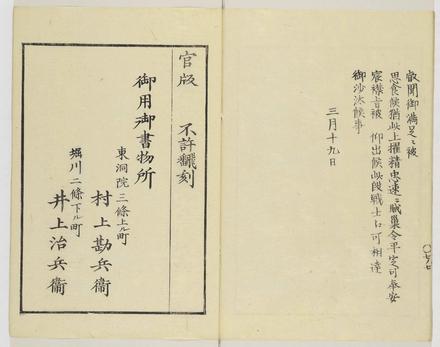 叡聞御満足ニ被
思食候猶此上擢精忠速ニ賊巣令平定可奉安
宸襟旨被　仰出候此段戦士江可相達
御沙汰候事
三月十九日
官版　不許飜刻
御用御書物所
東洞院三條上ル町
村上勘兵衞
堀川二條下ル町
井上治兵衞